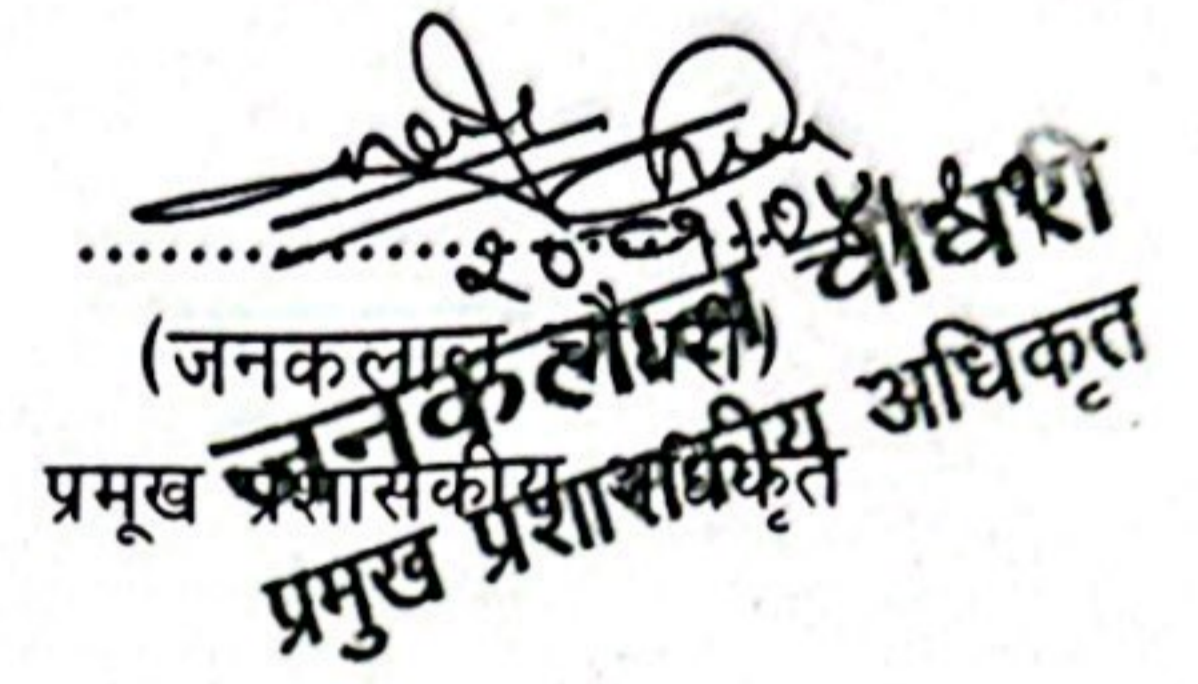 (जनकलाल चौधरी)
प्रमूख प्रसासकीय अधिकृत
जनकलाल चौधरी
प्रमुख प्रशासकीय अधिकृत